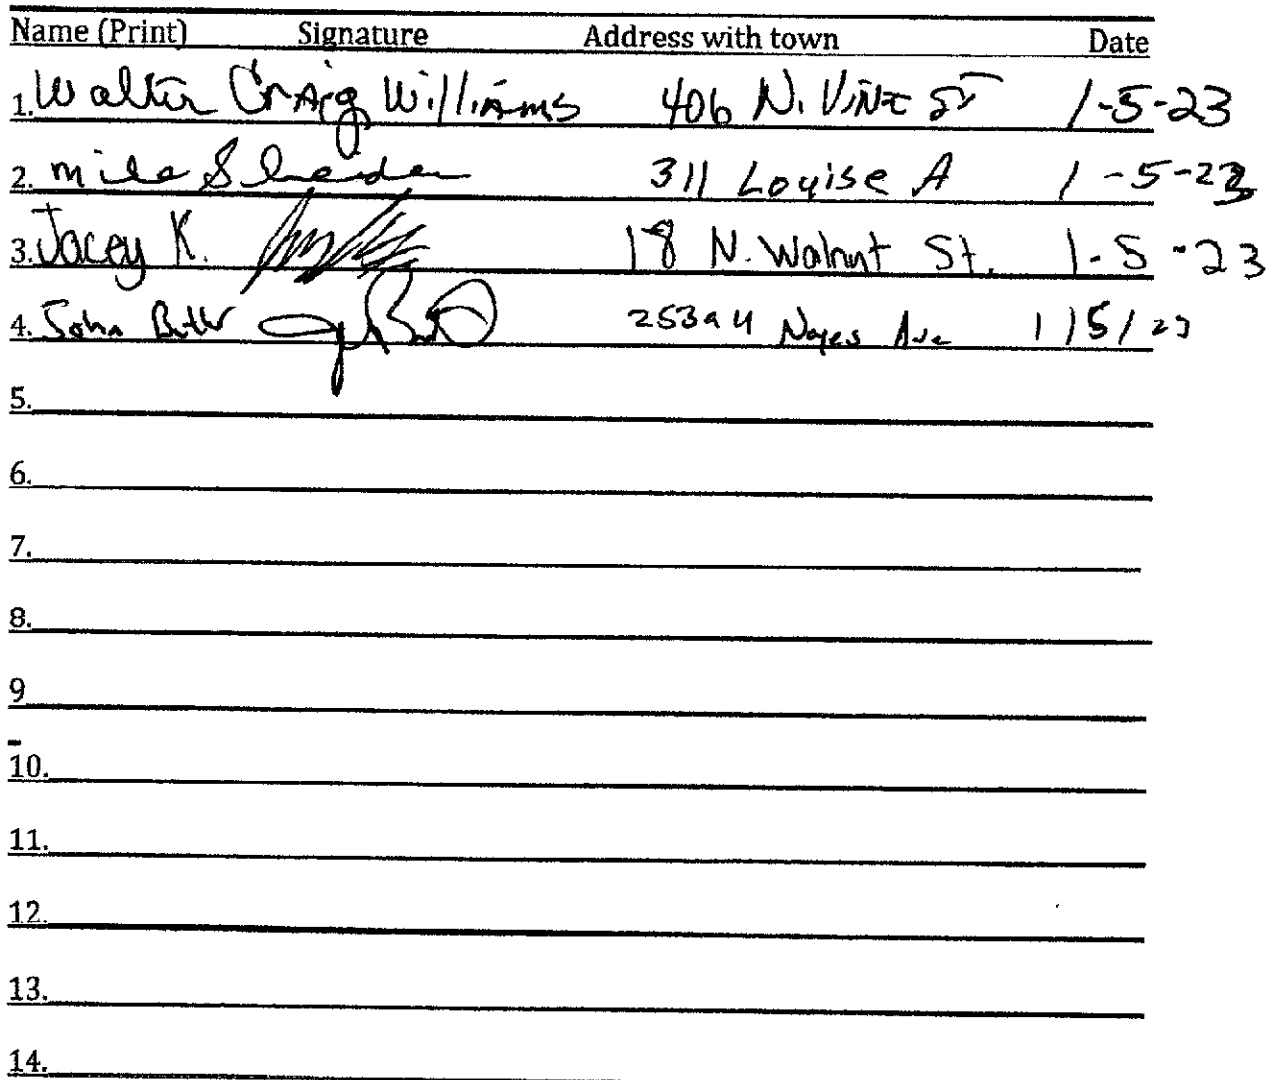 Name (Print) Signature Address with town Date
1. Walter Craig Williams 406 N. Vine ST 1-5-23
2. 311 Louise A 1-5-23
3. Jacey K. 18 N. Walnut St. 1-5-23
4. John Noyes Ave 1/5/23
5.
6.
7.
8.
9
10.
11.
12.
13.
14.